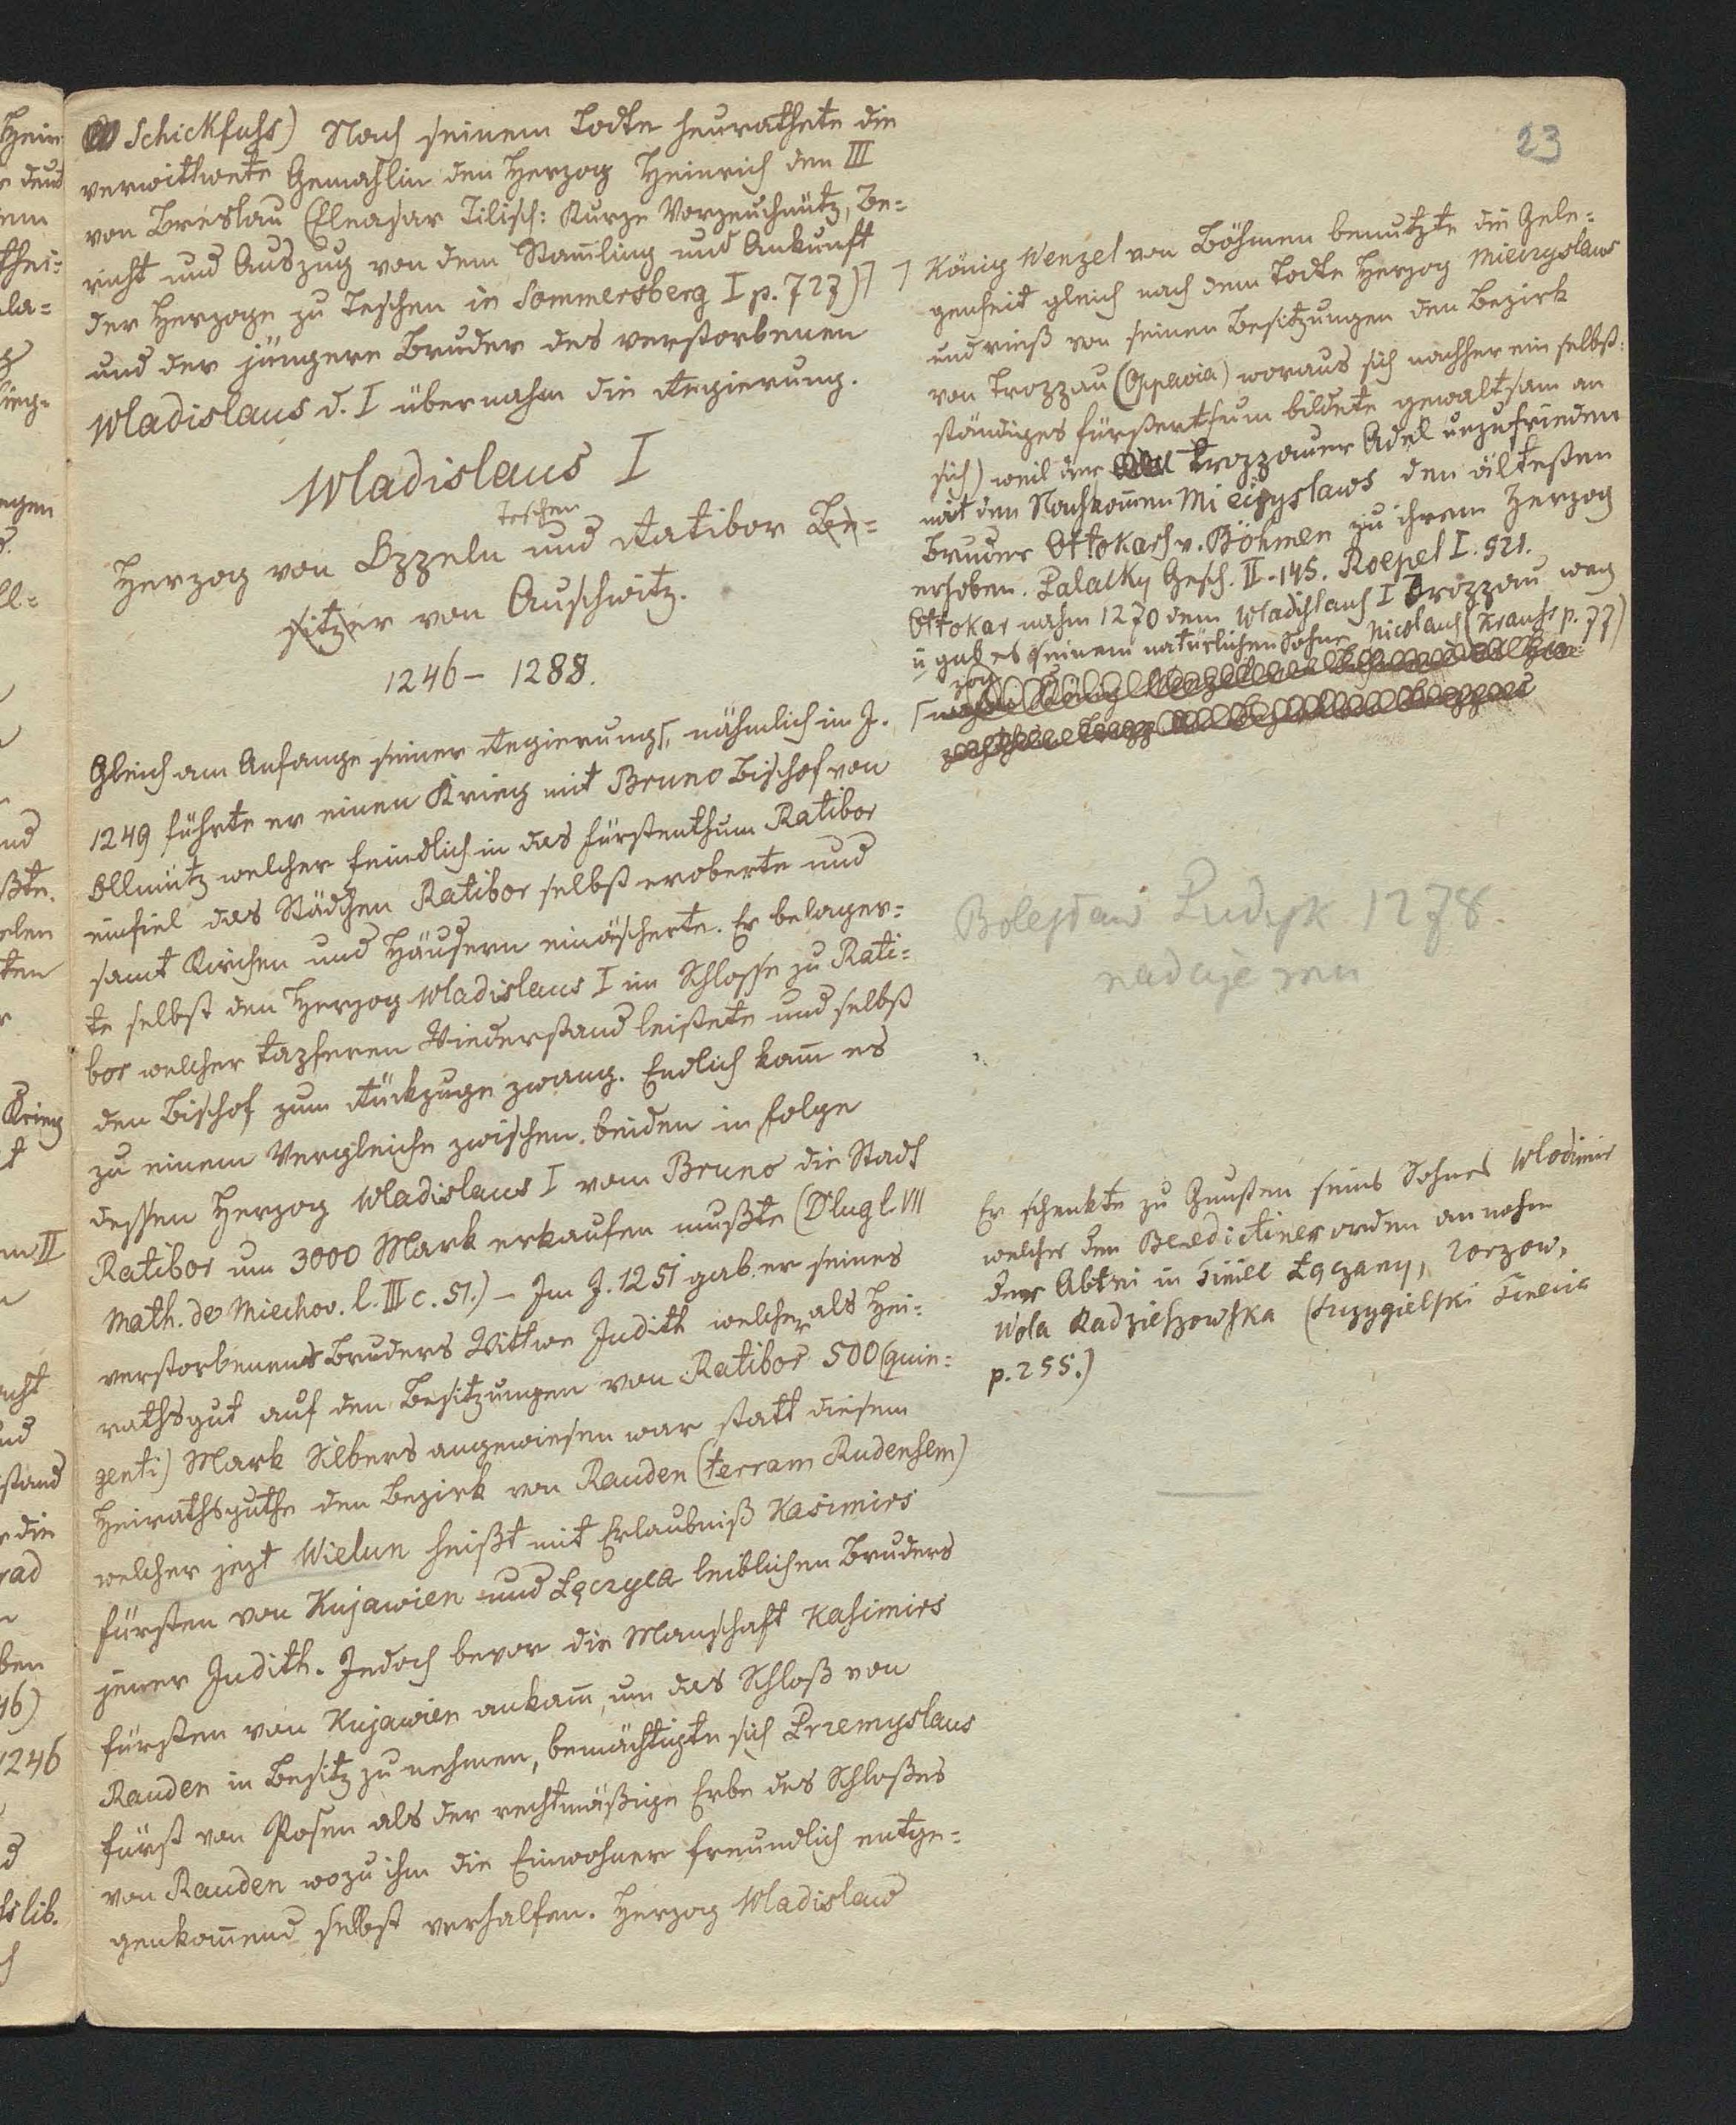 23
Schickfuss) Nach seinem Todte heurathete die
verwittwete Gemahlin den Herzog Heinrich den III
von Breslau (Eleasar Tilisch: Kurze Verzeuchnütz, Be=
richt und Auszug von dem Stam̅ling und Ankunft
der Herzoge zu Teschen in Sommersberg I p. 727)
und der jüngere Bruder des verstorbenen
Wladislaus d. I übernahm die Regierung.
Wladislaus I
Teschen
Herzog von Oppeln und Ratibor Be=
sitzer von Auschwitz.
1246 - 1288.
Gleich am Anfange seiner Regierung, nähmlich im J.
1249 führte er einen Krieg mit Bruno Bischof von
Ollmütz welcher feindlich in das Fürstenthum Ratibor
einfiel das Städchen Ratibor selbst eroberte und
samt Kirchen und Häusern einäscherte. Er belager=
te selbst den Herzog Wladislaus I im Schlosse zu Rati=
bor welcher tapferen Wiederstand leistete und selbst
den Bischof zum Rükzuge zwang. Endlich kam̅ es
zu einem Vergleiche zwischen beiden in Folge
dessen Herzog Wladislaus I vom Bruno die Stadt
Ratibor um 3000 Mark erkaufen mußte (Dlug l. VII
Math. de Miechov. l. III c. 51.) - Im J. 1251 gab er seines
verstorbenens Bruders Wittwe Judith welcher als Hei=
rathsgut auf den Besitzungen von Ratibor 500 (quin=
genti) Mark Silbers angewiesen war statt diesem
Heirathsguthe den Bezirk von Rauden (terram Rudensem)
welcher jezt Wielun heißt mit Erlaubniß Kasimirs
Fürsten von Kujawien und Łęczyca leiblichen Bruders
jener Judith. Jedoch bevor die Manschaft Kasimirs
Fürsten von Kujawien ankam̅, um das Schloß von
Rauden in Besitz zu nehmen, bemächtigte sich Przemyslaus
Fürst von Posen als der rechtmäßige Erbe des Schloßes
von Rauden wozu ihm die Einwohner freundlich entge=
genkom̅end selbst verhalfen. Herzog Wladislaus
König Wenzel von Böhmen benutzte die Gele=
genheit gleich nach dem Todte Herzog Mieczyslaws
und rieß von seinen Besitzungen den Bezirk
von Troppau (Opavia) woraus sich nachher ein selbst=
ständiges Fürstenthum bildete gewaltsam an
sich) weil der Troppauer Adel unzufrieden
mit den Nachkom̅en Mieczyslaws den ältesten
Bruder Ottokars v. Böhmen zu ihrem Herzog
erhoben. Palacky Gesch. II - 145. Roepel I. 521.
Ottokar nahm 1270 dem Wladislaus I Troppau weg
u gab es seinem natürlichen Sohne Nicolaus (Krauss p. 77)
Bolesław Pudyk 1278.
nadaje
Er schenkte zu Gunsten seines Sohnes Wlodimir
welcher den Benedictiner orden annahm
der Abtei in Tiniec Łączany, Zorzow,
Wola Radziszowska (Szczygielski Tinecia
p. 255.)